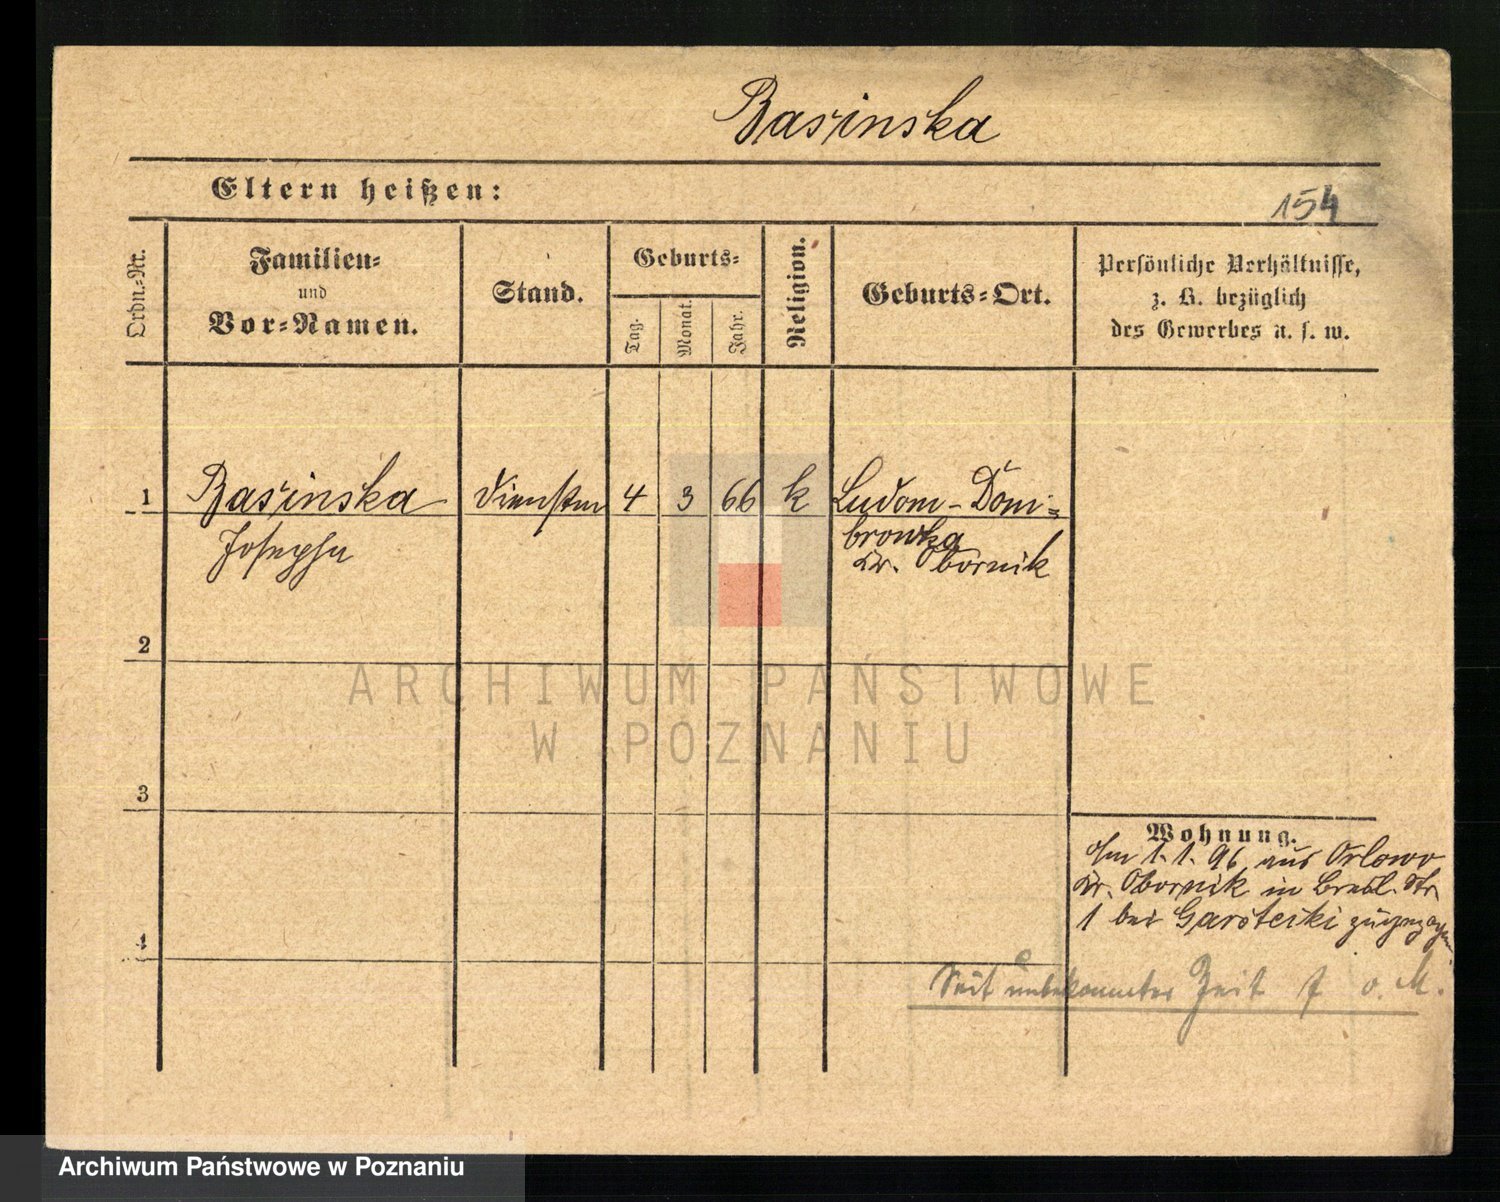 Basinska
Eltern heißen:
154
Ordn.-Nr.
Familien-
und
Vor-Namen.
Stand.
Geburts-
Tag.
Monat.
Jahr.
Religion.
Geburts-Ort.
Persönliche Verhältnisse,
z. B. bezüglich
des Gewerbes u. s. w.
1 Basinska 4 3 66 k Ludom-Dom-
Josepha browka
Kr. Obornik
2
3
4
Wohnung.
Am 1.1.96 aus Orlowo
Kr. Obornik in Bresl. Str.
1 bei zugezogen
Seit unbekannter Zeit f o. M.
ARCHIWUM PAŃSTWOWE
W POZNANIU
Archiwum Państwowe w Poznaniu